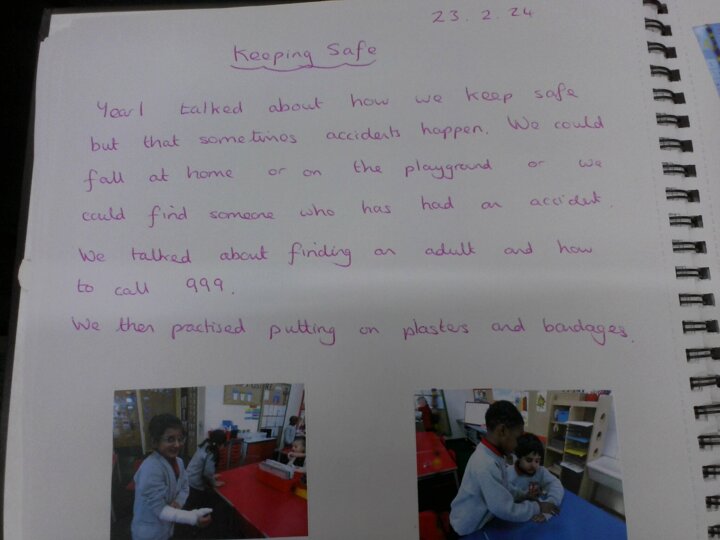 23.2.24
Keeping Safe
Year 1 talked about how we keep safe
but that sometimes accidents happen. We could
fall at home or on the playground or we
could find someone who has had an accident.
We talked about finding an adult and how
to call 999.
We then practised putting on plasters and bandages.